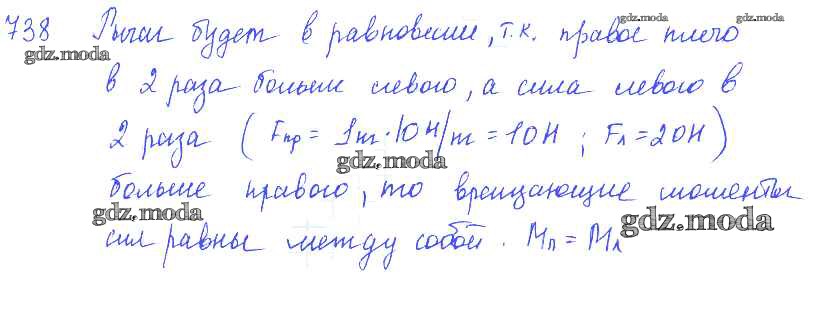 738 Рычаг будет в равновесии, т.к. правое плечо
в 2 раза больше левого, а сила левого в
2 раза (Fпр = 1кг·10Н/кг = 10Н ; Fл = 20Н)
больше правого, то вращающие моменты
сил равны между собой. Mп = Mл
gdz.moda
gdz.moda
gdz.moda
gdz.moda
gdz.moda
gdz.moda